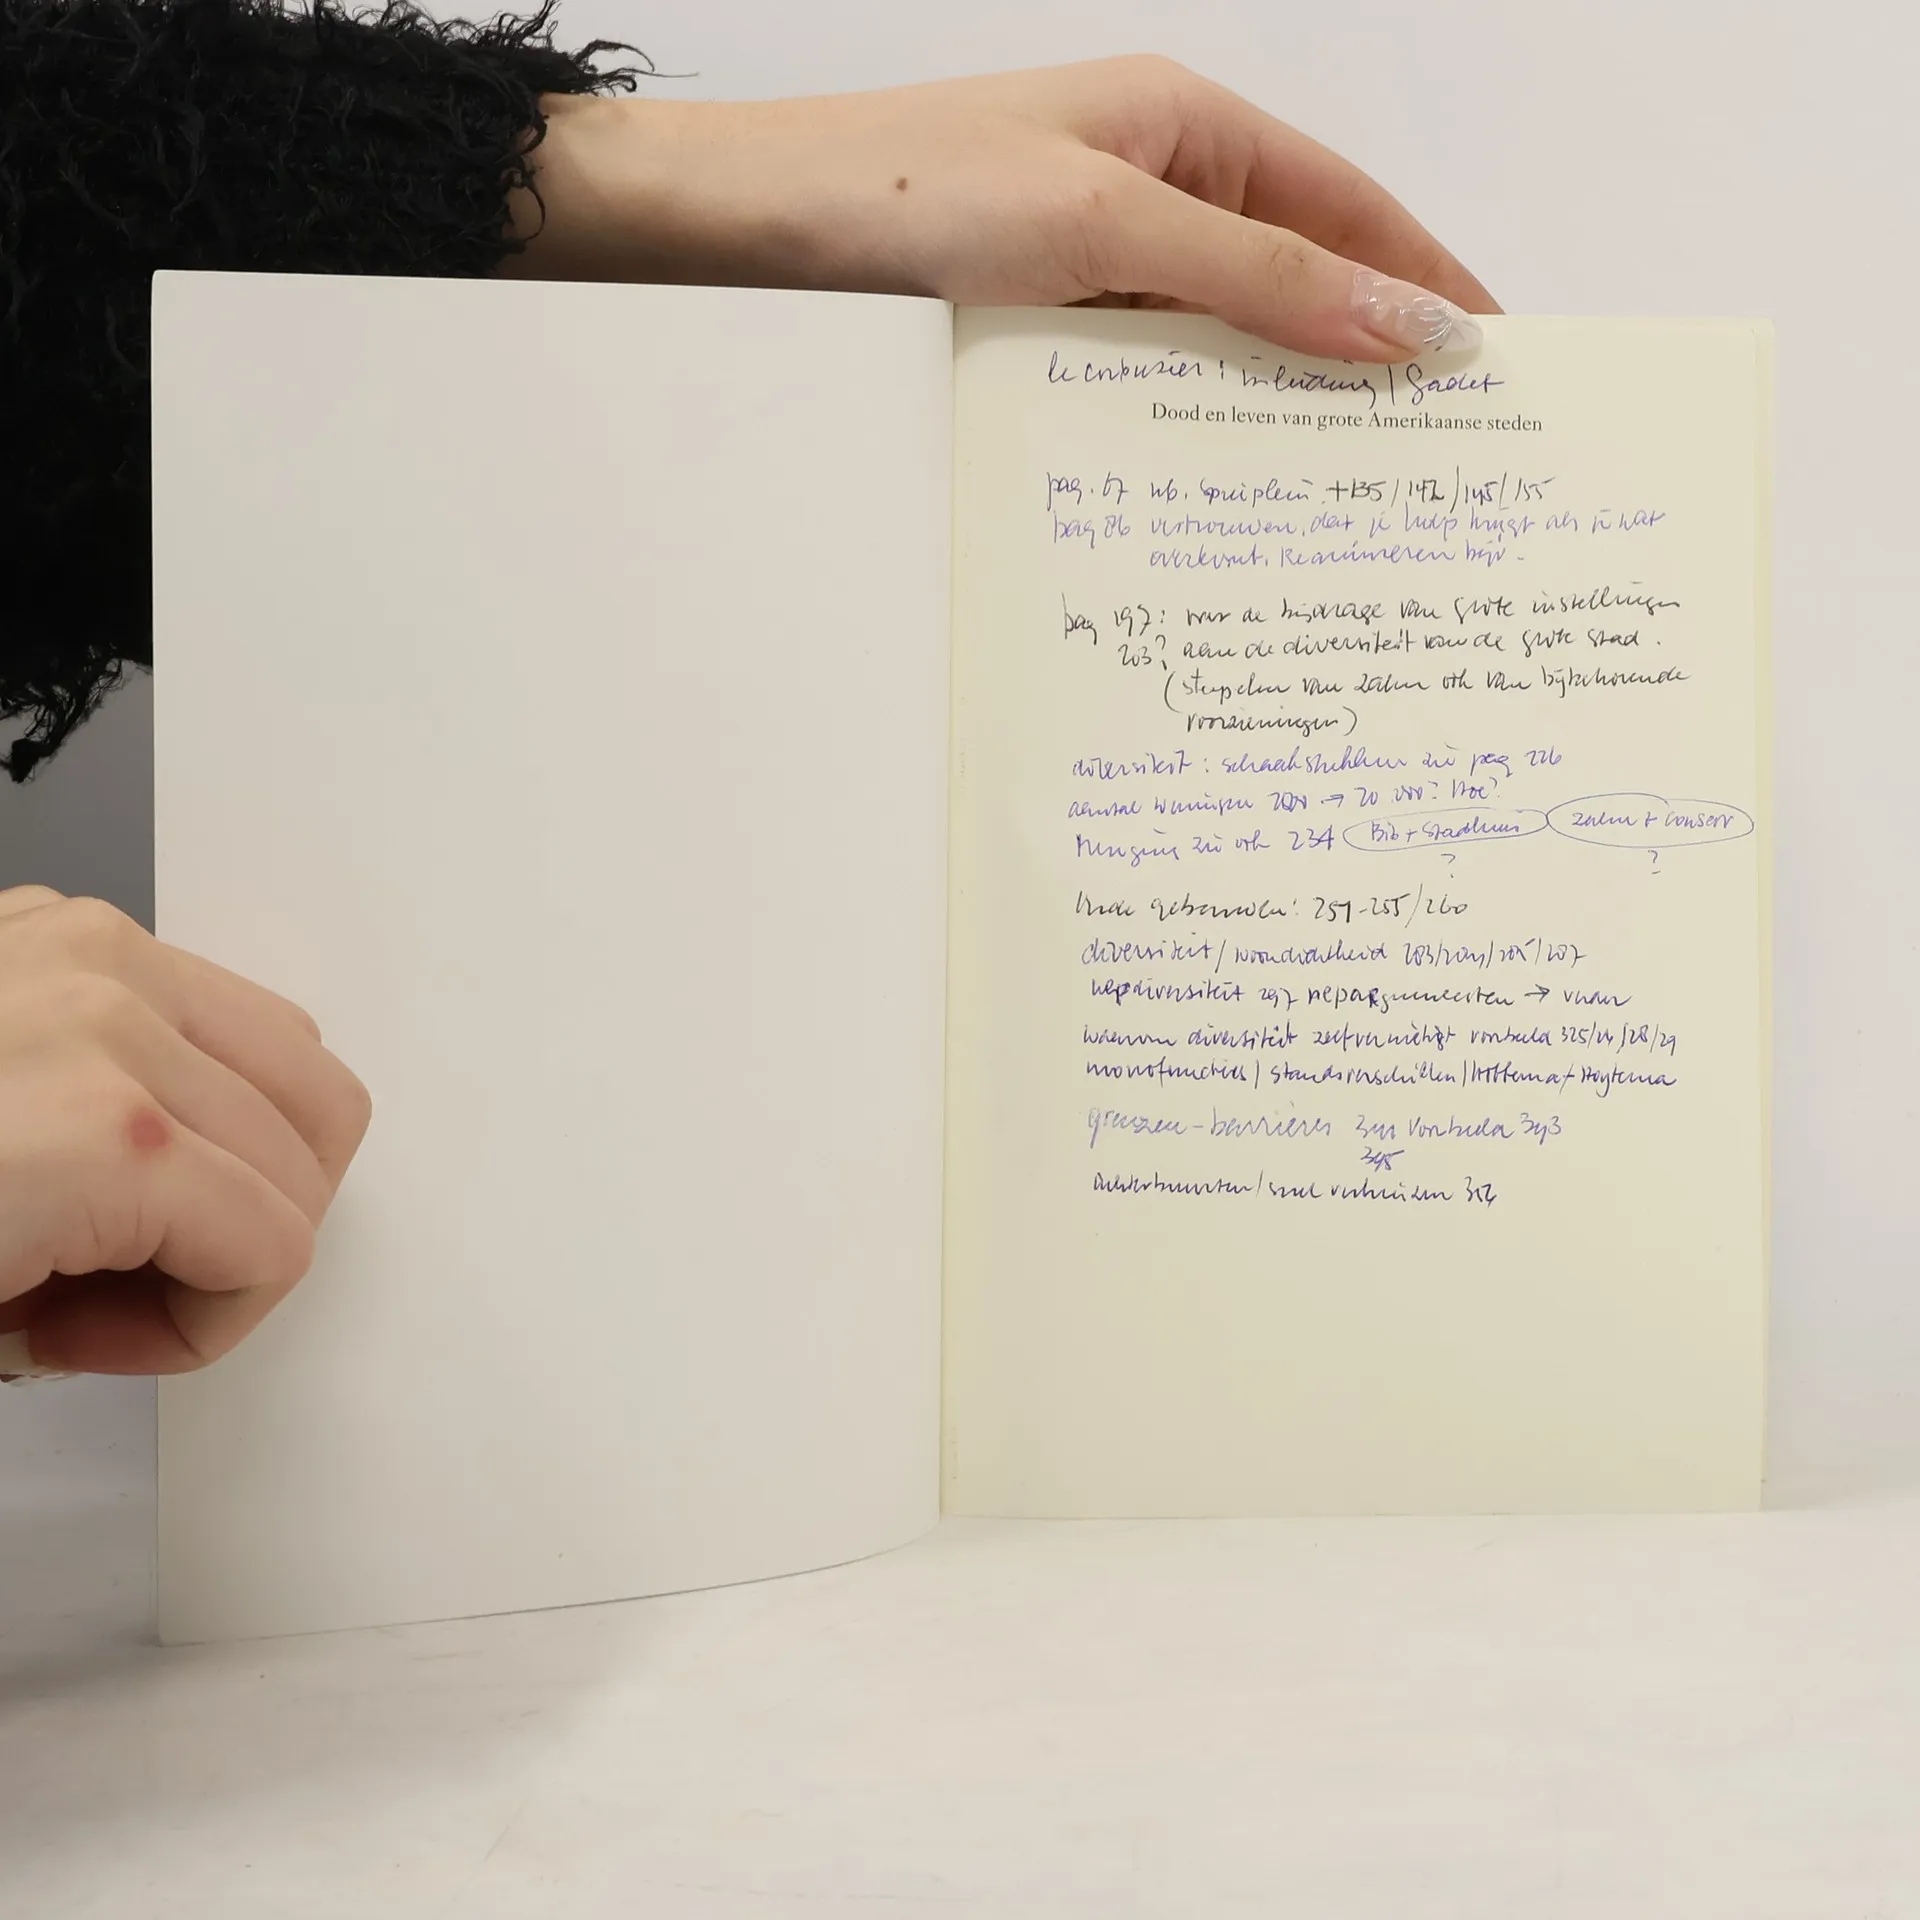 le corbusier : inleiding /
Dood en leven van grote Amerikaanse steden
pag. 67 nb. speelplein +135/142/145/155
pag 86 vertrouwen, dat je hulp krijgt als je wat
overkomt. Reanimeren bijv.
pag 197: voor de bijdrage van grote instellingen
203? aan de diversiteit van de grote stad.
(stapelen van zalen ook van bijbehorende
voorzieningen)
diversiteit: zie pag 226
aantal woningen → 20.000? Hoe?
Menging zie ook 234 Bib + Stadhuis zalen + conserv
? ?
Oude gebouwen: 255/260
diversiteit/woondichtheid
nepdiversiteit 297 nepargumenten →
waarom diversiteit zelfvernietigt voorbeeld 325/26/28/29
monofuncties/standsverschillen/
grenzen-barrières voorbeeld 343
345
achterbuurten/snel verhuizen